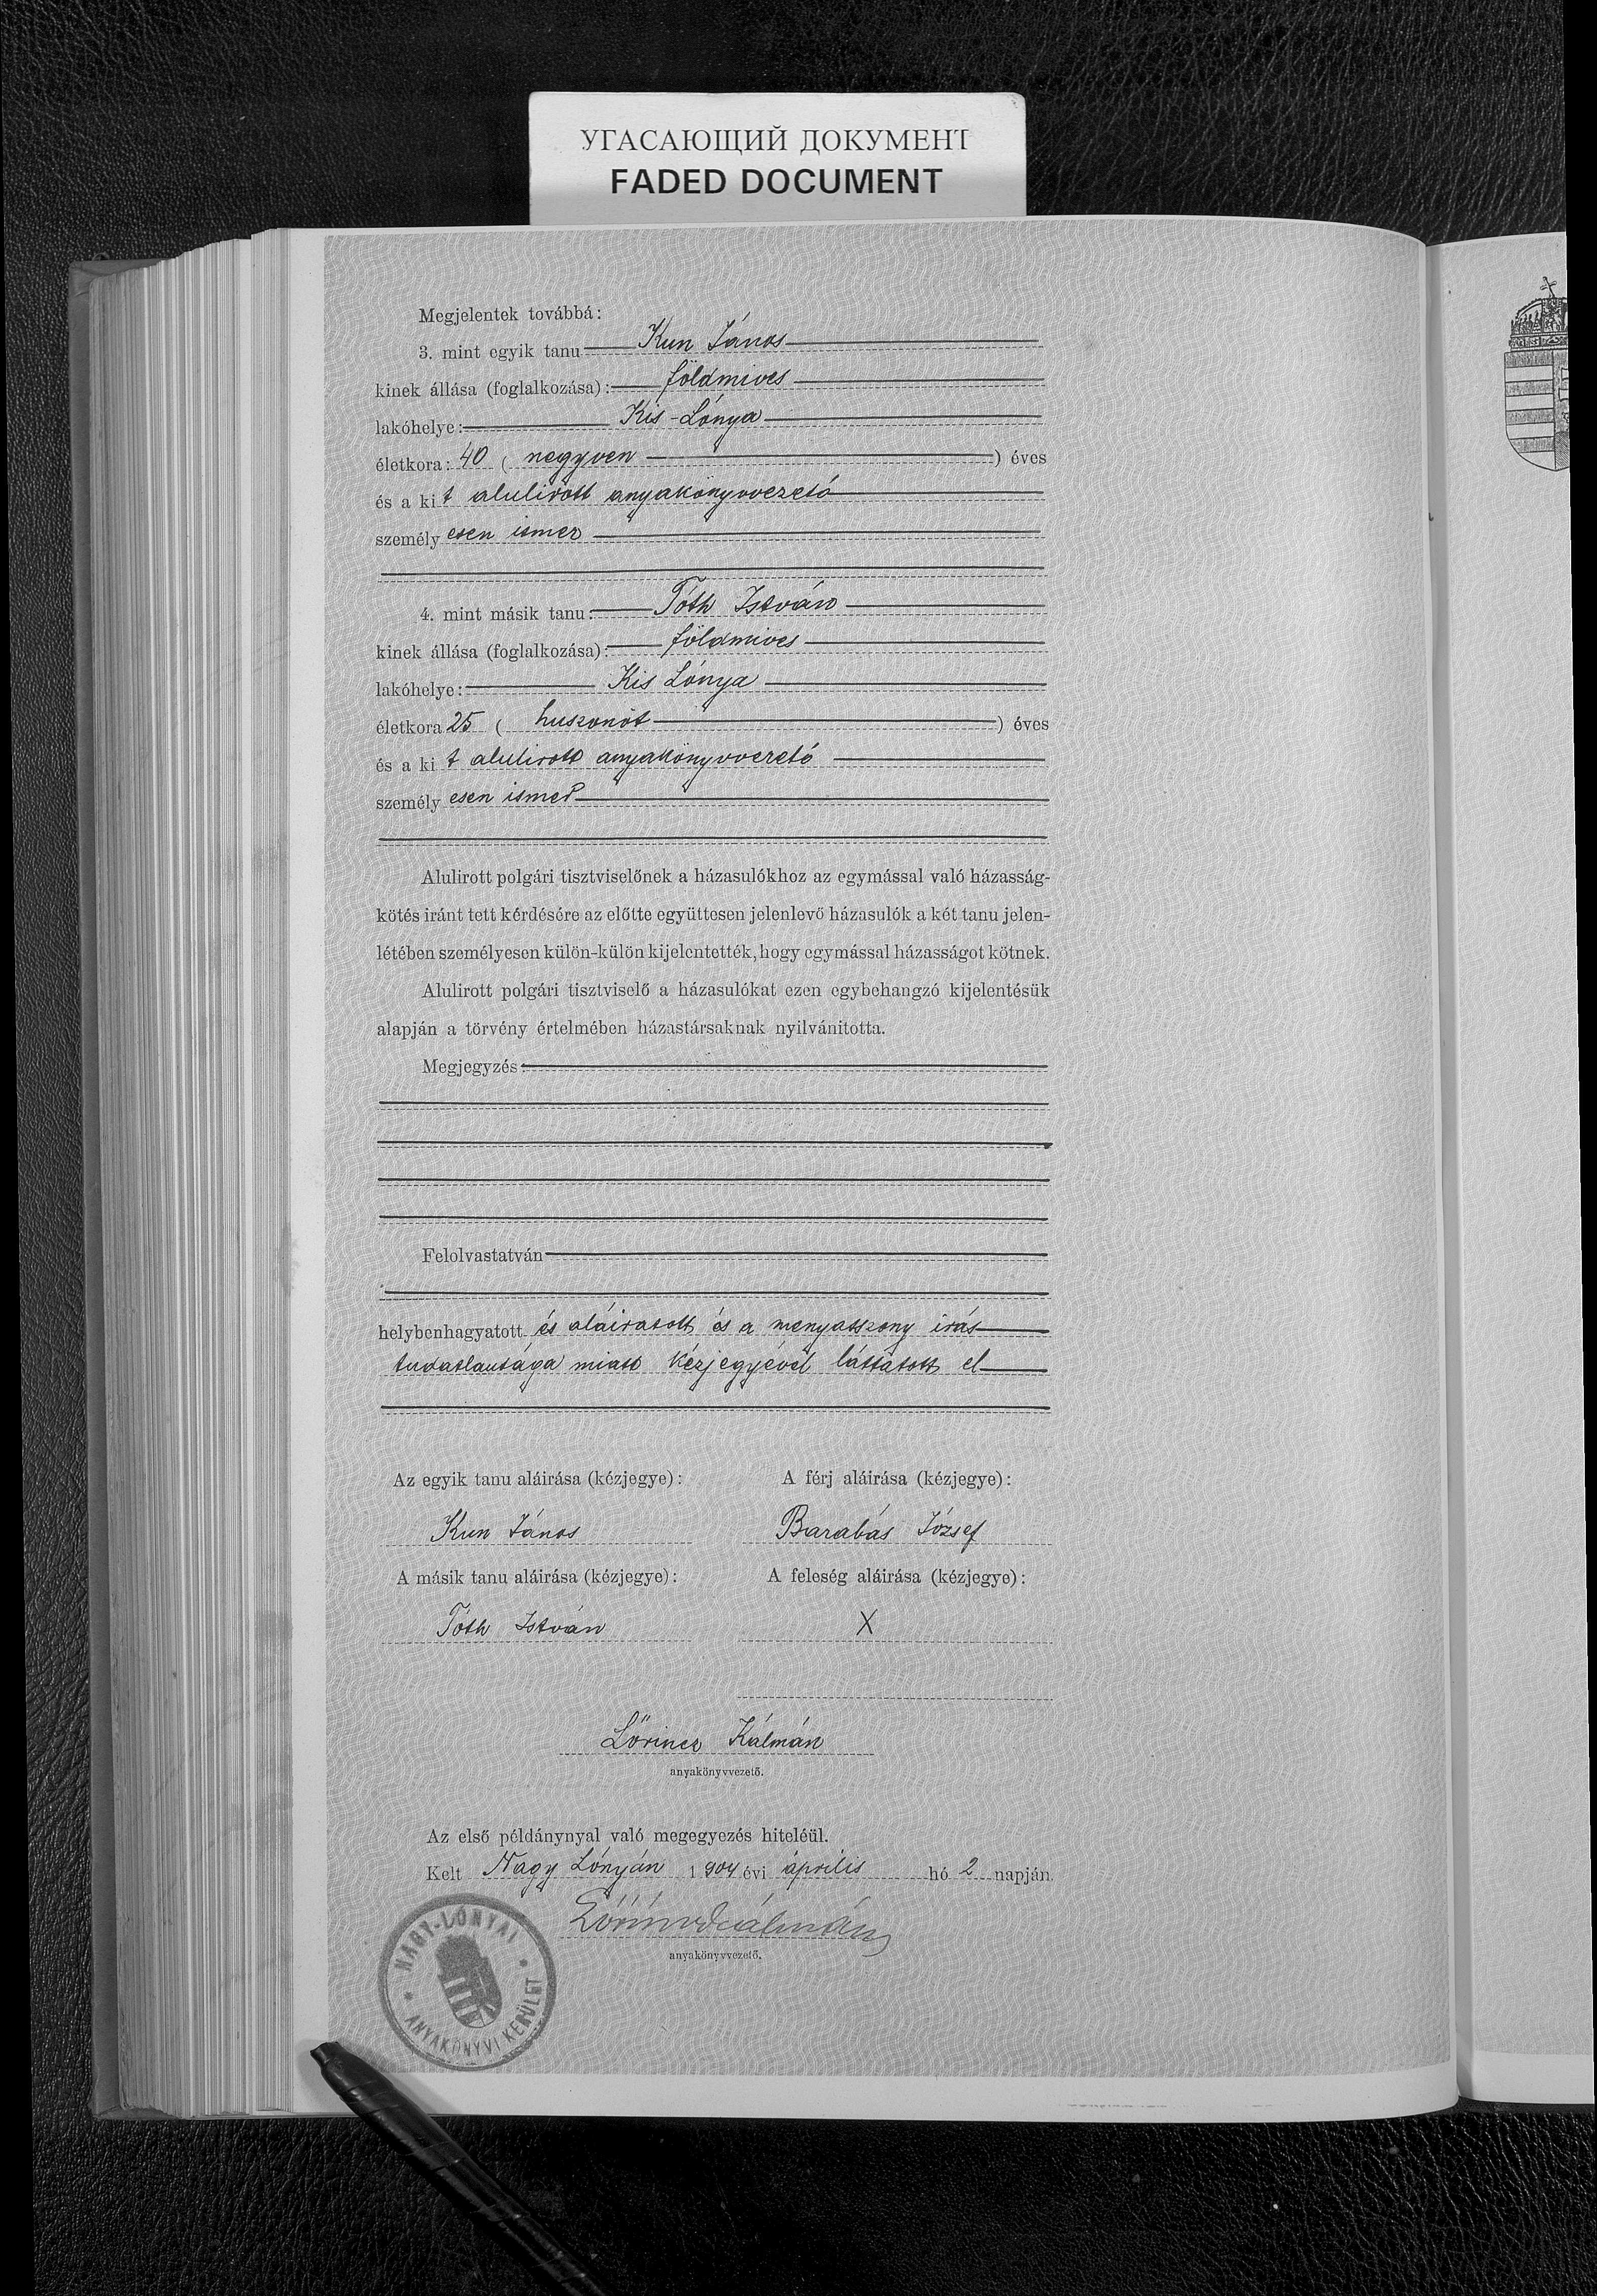 УГАСАЮЩИЙ ДОКУМЕНТ
FADED DOCUMENT
Megjelentek továbbá:
3. mint egyik tanu Kun János
kinek állása (foglalkozása): földmives
lakóhelye: Kis-Lónya
életkora: 40 (negyven) éves
és a ki t alulirott anyakönyvvezető
személy esen ismer
4. mint másik tanu: Tóth István
kinek állása (foglalkozása): földmives
lakóhelye: Kis Lónya
életkora 25 (huszonöt) éves
és a ki t alulirott anyakönyvvezető
személy esen ismer
Alulirott polgári tisztviselőnek a házasulókhoz az egymással való házasság-
kötés iránt tett kérdésére az előtte együttesen jelenlevő házasulók a két tanu jelen-
létében személyesen külön-külön kijelentették, hogy egymással házasságot kötnek.
Alulirott polgári tisztviselő a házasulókat ezen egybehangzó kijelentésük
alapján a törvény értelmében házastársaknak nyilvánitotta.
Megjegyzés:
Felolvastatván
helybenhagyatott és aláiratott és a menyasszony irás
tudatlansága miatt kézjegyével láttatott el
Az egyik tanu aláirása (kézjegye): A férj aláirása (kézjegye):
Kun János Barabás József
A másik tanu aláirása (kézjegye): A feleség aláirása (kézjegye):
Tóth István X
Lőrincz Kálmán
anyakönyvvezető.
Az első példánynyal való megegyezés hiteléül.
Kelt Nagy Lónyán 1904 évi április hó 2 napján
Lőrincz Kálmán
anyakönyvvezető.
NAGY-LÓNYAI
* ANYAKÖNYVI KERÜLET *